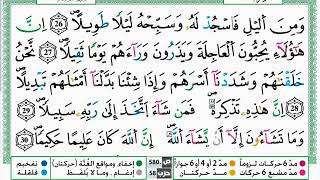 وَمِنَ ٱلَّيْلِ فَٱسْجُدْ لَهُۥ وَسَبِّحْهُ لَيْلًا طَوِيلًا ﴿26﴾ إِنَّ
هَٰٓؤُلَآءِ يُحِبُّونَ ٱلْعَاجِلَةَ وَيَذَرُونَ وَرَآءَهُمْ يَوْمًا ثَقِيلًا ﴿27﴾ نَّحْنُ
خَلَقْنَٰهُمْ وَشَدَدْنَآ أَسْرَهُمْ وَإِذَا شِئْنَا بَدَّلْنَآ أَمْثَٰلَهُمْ تَبْدِيلًا
﴿28﴾ إِنَّ هَٰذِهِۦ تَذْكِرَةٌ فَمَن شَآءَ ٱتَّخَذَ إِلَىٰ رَبِّهِۦ سَبِيلًا ﴿29﴾
وَمَا تَشَآءُونَ إِلَّآ أَن يَشَآءَ ٱللَّهُ إِنَّ ٱللَّهَ كَانَ عَلِيمًا حَكِيمًا ﴿30﴾
مدّ 6 حركات لزوماً مدّ 2 أو 4 أو 6 جوازاً ص 580 إخفاء، ومواقع الغُنَّة (حركتان) تفخيم
مدّ مشبع 6 حركات مدّ حركتان حزب 58 إدغام، وما لا يُلفَظ قلقلة